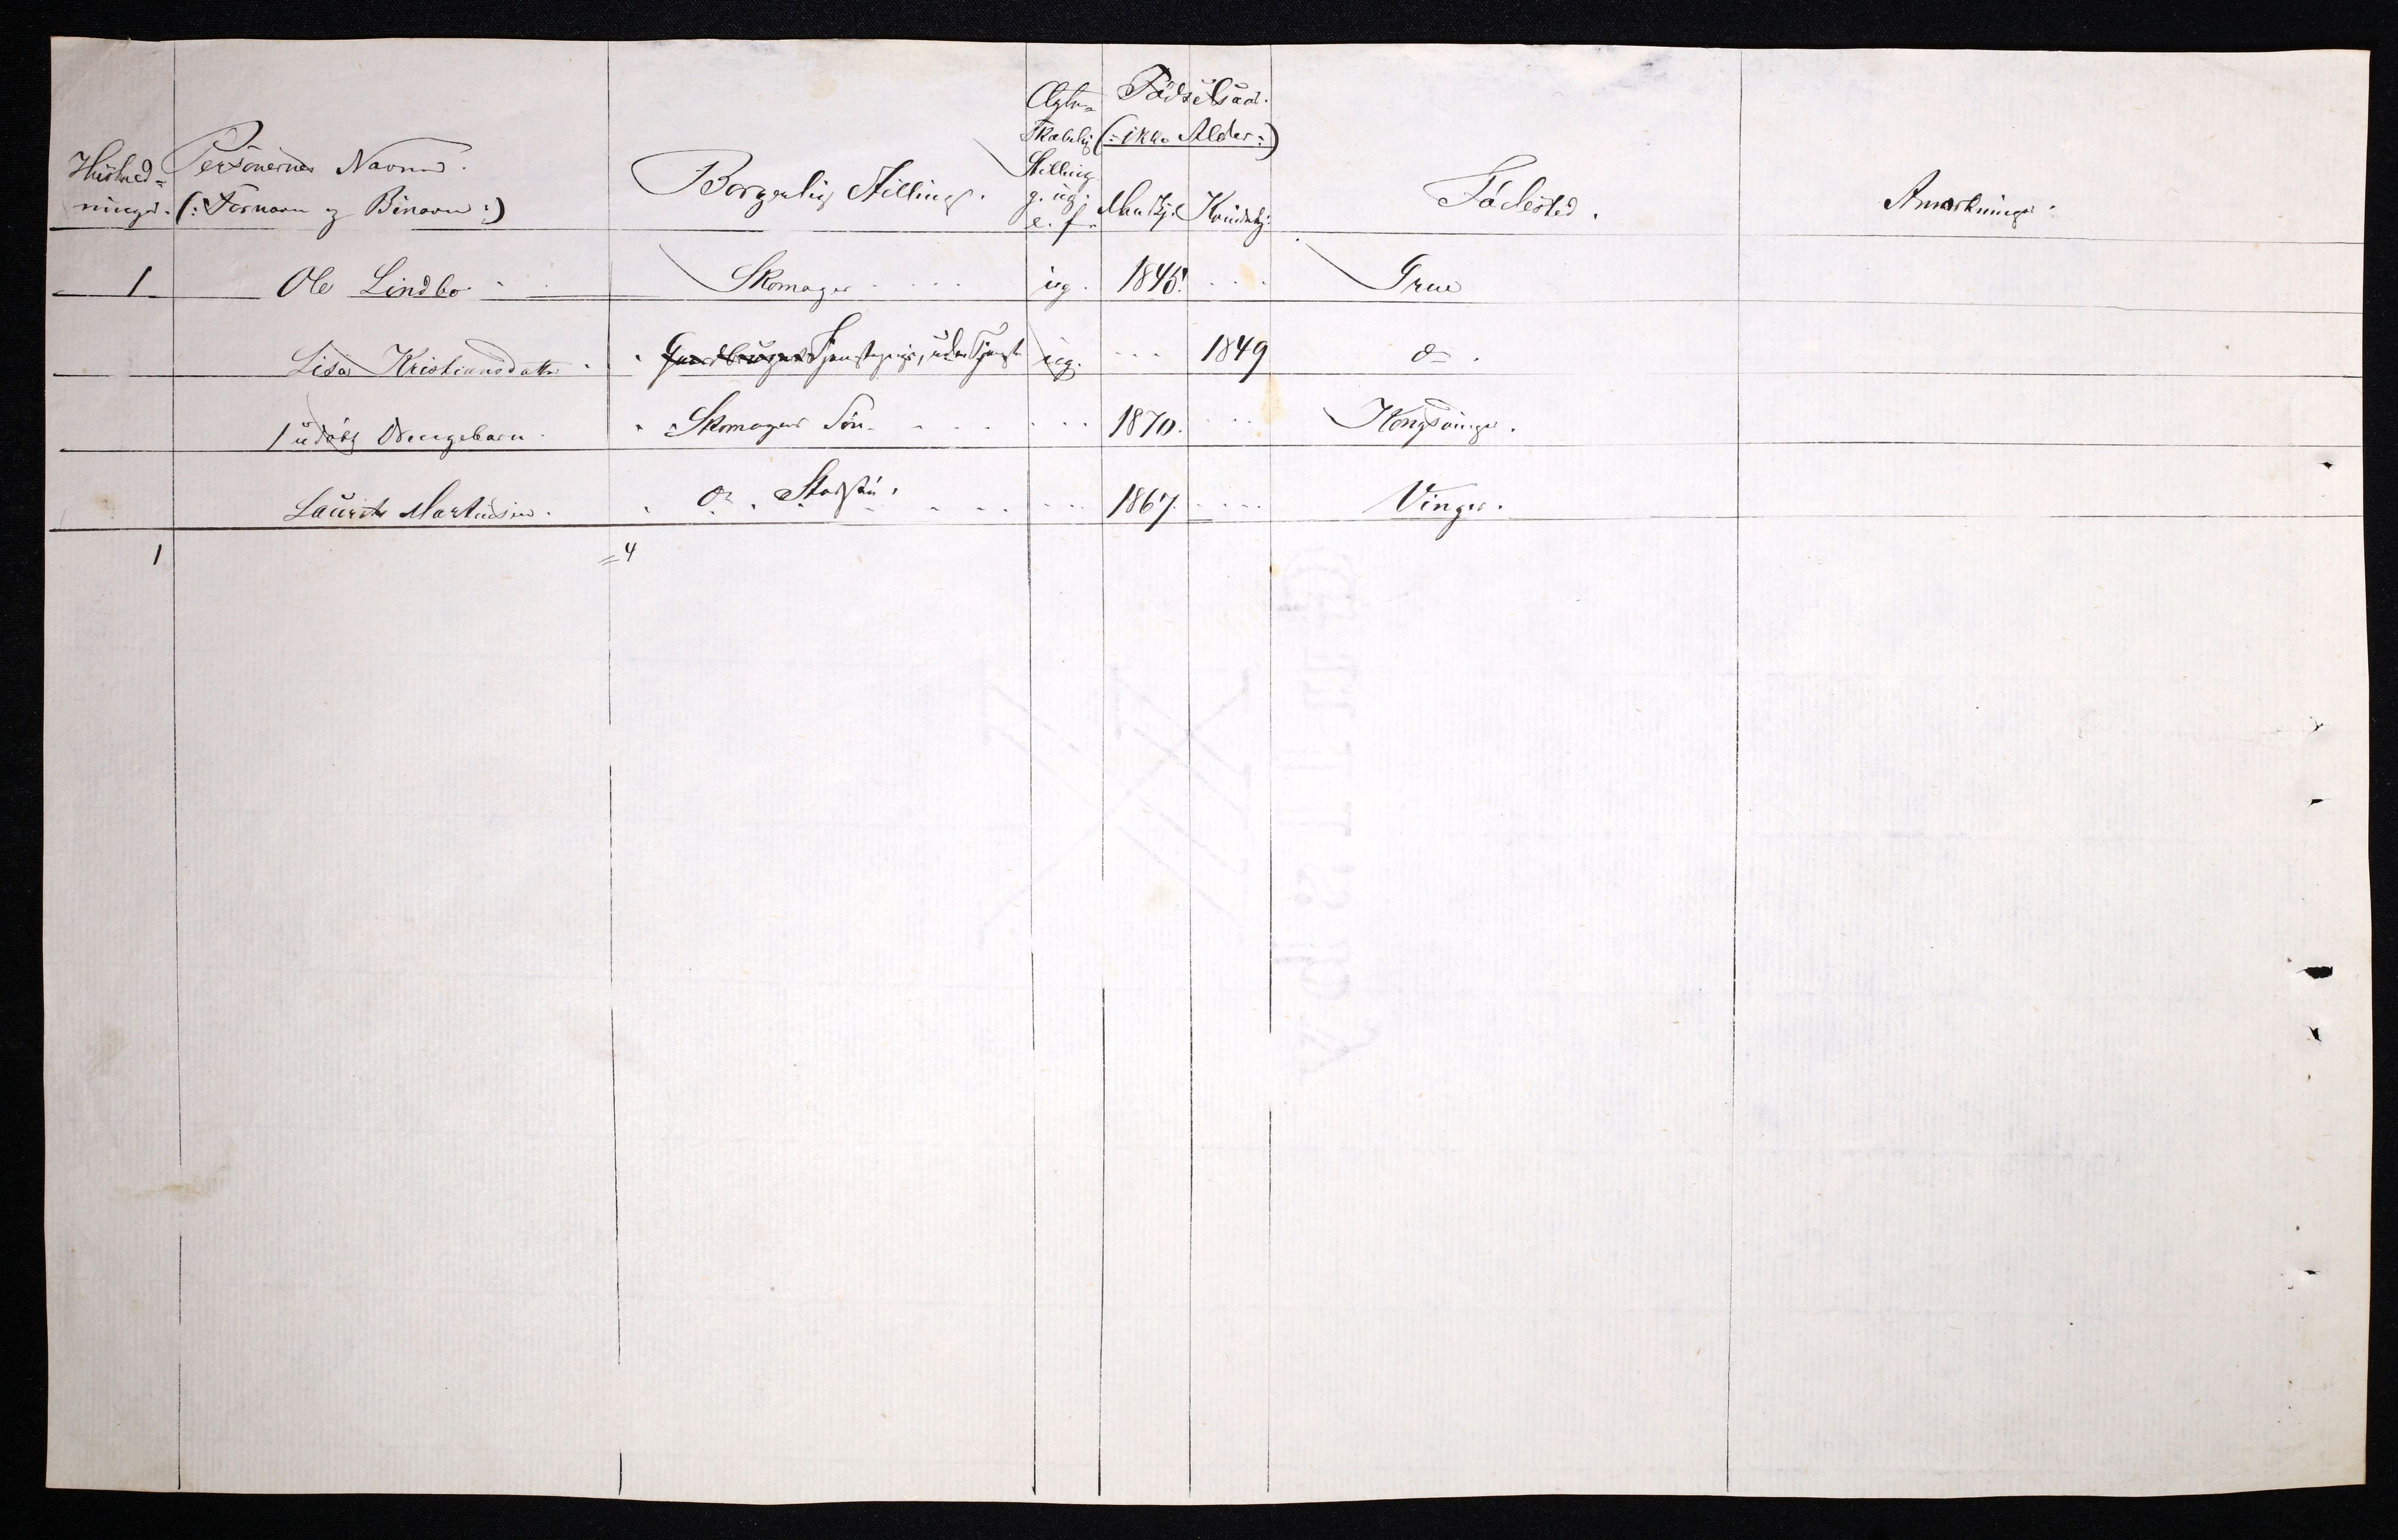 Husholdninger. Personernes Navne. (: Fornavn og Binavn :) Borgerlig Stilling. Ægteskabelig Stilling g. ug. e. f. Fødselsaar. (: ikke Alder :) Mandkj. Kvindekj. Fødested. Anmærkninger.
1 Ole Lindbo Skomager ug. 1845. Grue
Lisa Kristiansdatter Tjenestepige, uden Tjeneste ug. 1849 do.
1 udøbt Drengebarn. Skomagers Søn 1870. Kongsvinger.
Laurits Martinsen. do. 1867. Vinger.
1 = 4